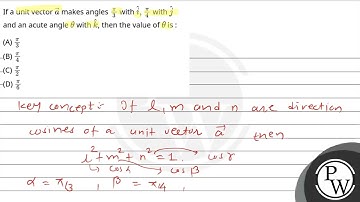 If a unit vector a⃗ makes angles π/3 with î, π/4 with ĵ
and an acute angle θ with k̂, then the value of θ is :
(A) π/3
(B) π/4
(C) π/2
(D) π/6
Key concept:- If l, m and n are direction
cosines of a unit vector a⃗ then
l² + m² + n² = 1. cos γ
cos α cos β
α = π/3 , β = π/4 ,
PW